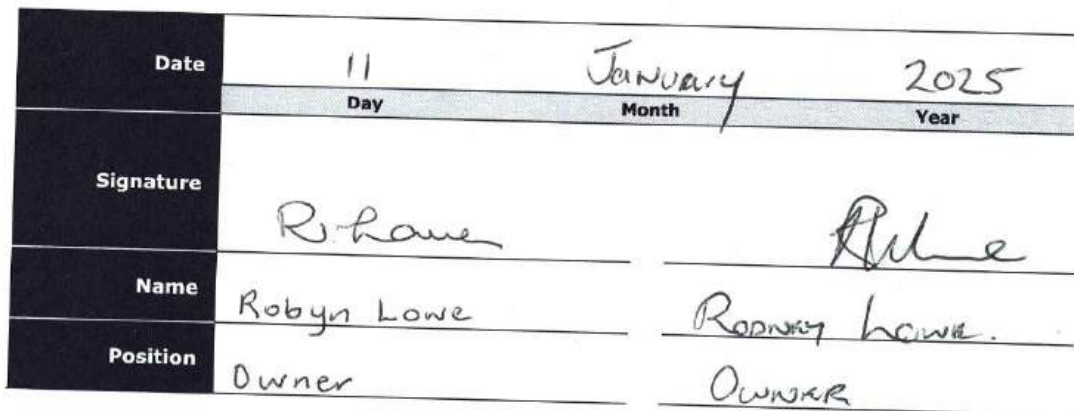 Date 11 January 2025
Day Month Year
Signature R. Lowe
Name Robyn Lowe Rodney Lowe.
Position Owner OWNER